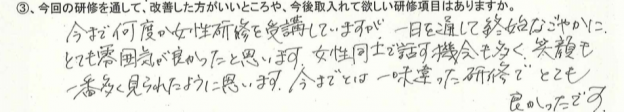 ③、今回の研修を通して、改善した方がいいところや、今後取入れて欲しい研修項目はありますか。
今まで何度か女性研修を受講していますが、一日を通して終始なごやかに、
とても雰囲気が良かったと思います。女性同士で話す機会も多く、笑顔も
一番多く見られたように思います。今までとは一味違った研修でとても
良かったです。